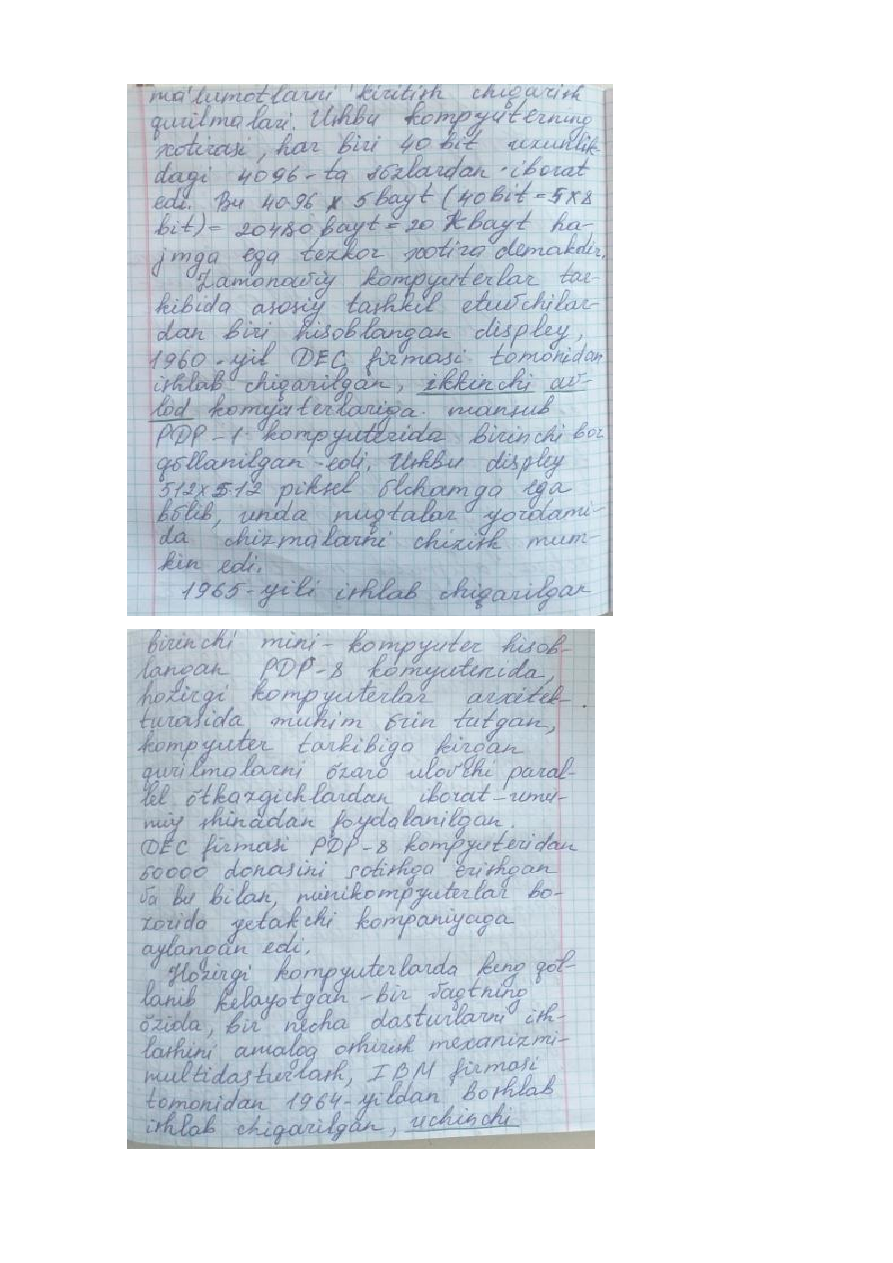 ma'lumotlarni kiritish chiqarish
qurilmalari. Ushbu kompyuterning
xotirasi, har biri 40 bit uzunlik-
dagi 4096-ta sõzlardan iborat
edi. Bu 4096 x 5 bayt (40bit = 5x8
bit) = 20480 bayt = 20 Kbayt ha-
jmga ega tezkor xotira demakdir.
Zamonaviy kompyuterlar tar-
kibida asosiy tashkil etuvchilar-
dan biri hisoblangan displey,
1960-yil DEC firmasi tomonidan
ishlab chiqarilgan, ikkinchi av-
lod komyuterlariga mansub
PDP-1 kompyuterida birinchi bor
qõllanilgan edi. Ushbu displey
512x512 piksel õlchamga ega
bõlib, unda nuqtalar yordami-
da chizmalarni chizish mum-
kin edi.
1965-yili ishlab chiqarilgan
birinchi mini-kompyuter hisob-
langan PDP-8 komyuterida,
hozirgi kompyuterlar arxitek-
turasida muhim õrin tutgan,
kompyuter tarkibiga kirgan
qurilmalarni õzaro ulovchi paral-
lel õtkazgichlardan iborat-umu-
miy shinadan foydalanilgan.
DEC firmasi PDP-8 kompyuteridan
50000 donasini sotishga erishgan
va bu bilan, minikompyuterlar bo-
zorida yetakchi kompaniyaga
aylangan edi.
Hozirgi kompyuterlarda keng qõl-
lanib kelayotgan-bir vaqtning
õzida, bir necha dasturlarni ish-
lashini amalga oshirish mexanizmi-
multidasturlash, IBM firmasi
tomonidan 1964-yildan boshlab
ishlab chiqarilgan, uchinchi